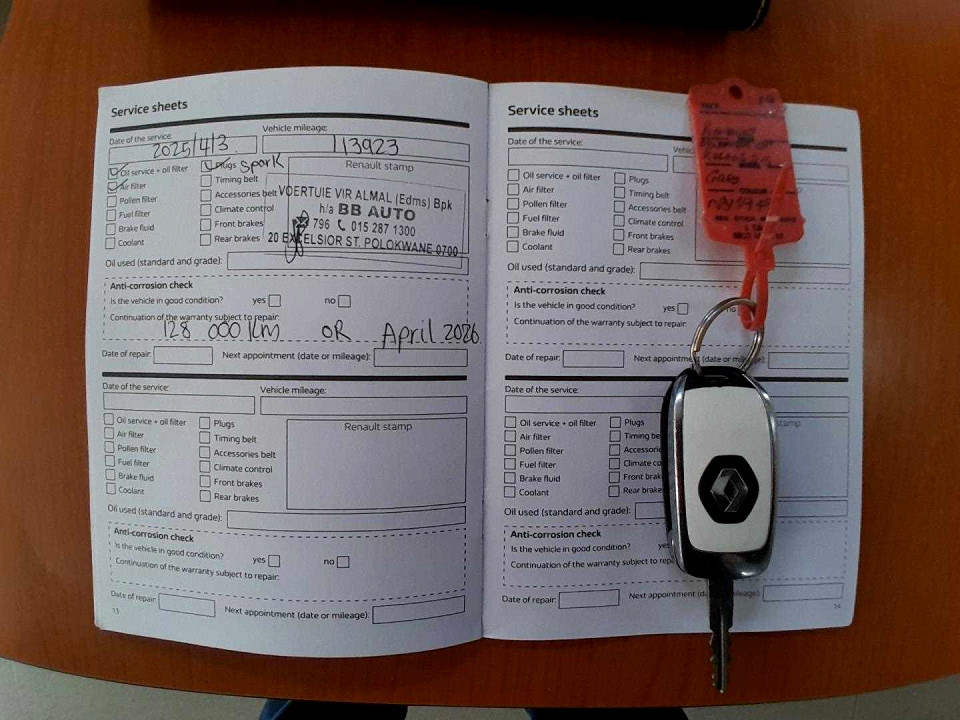 Service sheets
Date of the service:
Vehicle mileage:
2025/4/3
113923
Oil service + oil filter
Plugs Spark
Renault stamp
Air filter
Timing belt
Pollen filter
Accessories belt
Fuel filter
Climate control
Brake fluid
Front brakes
Coolant
Rear brakes
VOERTUIE VIR ALMAL (Edms) Bpk
h/a BB AUTO
796 015 287 1300
20 EXCELSIOR ST. POLOKWANE 0700
Oil used (standard and grade):
Anti-corrosion check
Is the vehicle in good condition? yes no
Continuation of the warranty subject to repair:
128 000 Km OR April 2026
Date of repair: Next appointment (date or mileage):
Date of the service:
Vehicle mileage:
Oil service + oil filter
Plugs
Renault stamp
Air filter
Timing belt
Pollen filter
Accessories belt
Fuel filter
Climate control
Brake fluid
Front brakes
Coolant
Rear brakes
Oil used (standard and grade):
Anti-corrosion check
Is the vehicle in good condition? yes no
Continuation of the warranty subject to repair:
Date of repair: Next appointment (date or mileage):
13
Service sheets
Date of the service:
Oil service + oil filter
Plugs
Air filter
Timing belt
Pollen filter
Accessories belt
Fuel filter
Climate control
Brake fluid
Front brakes
Coolant
Rear brakes
Oil used (standard and grade):
Anti-corrosion check
Is the vehicle in good condition? yes
Continuation of the warranty subject to repair:
Date of repair: Next appointment (date or mileage):
Date of the service:
Oil service + oil filter
Plugs
Air filter
Timing be
Pollen filter
Accesso
Fuel filter
Climate co
Brake fluid
Front brak
Coolant
Rear brak
Oil used (standard and grade):
Anti-corrosion check
Is the vehicle in good condition?
Continuation of the warranty subject to
Date of repair: Next appointment
14